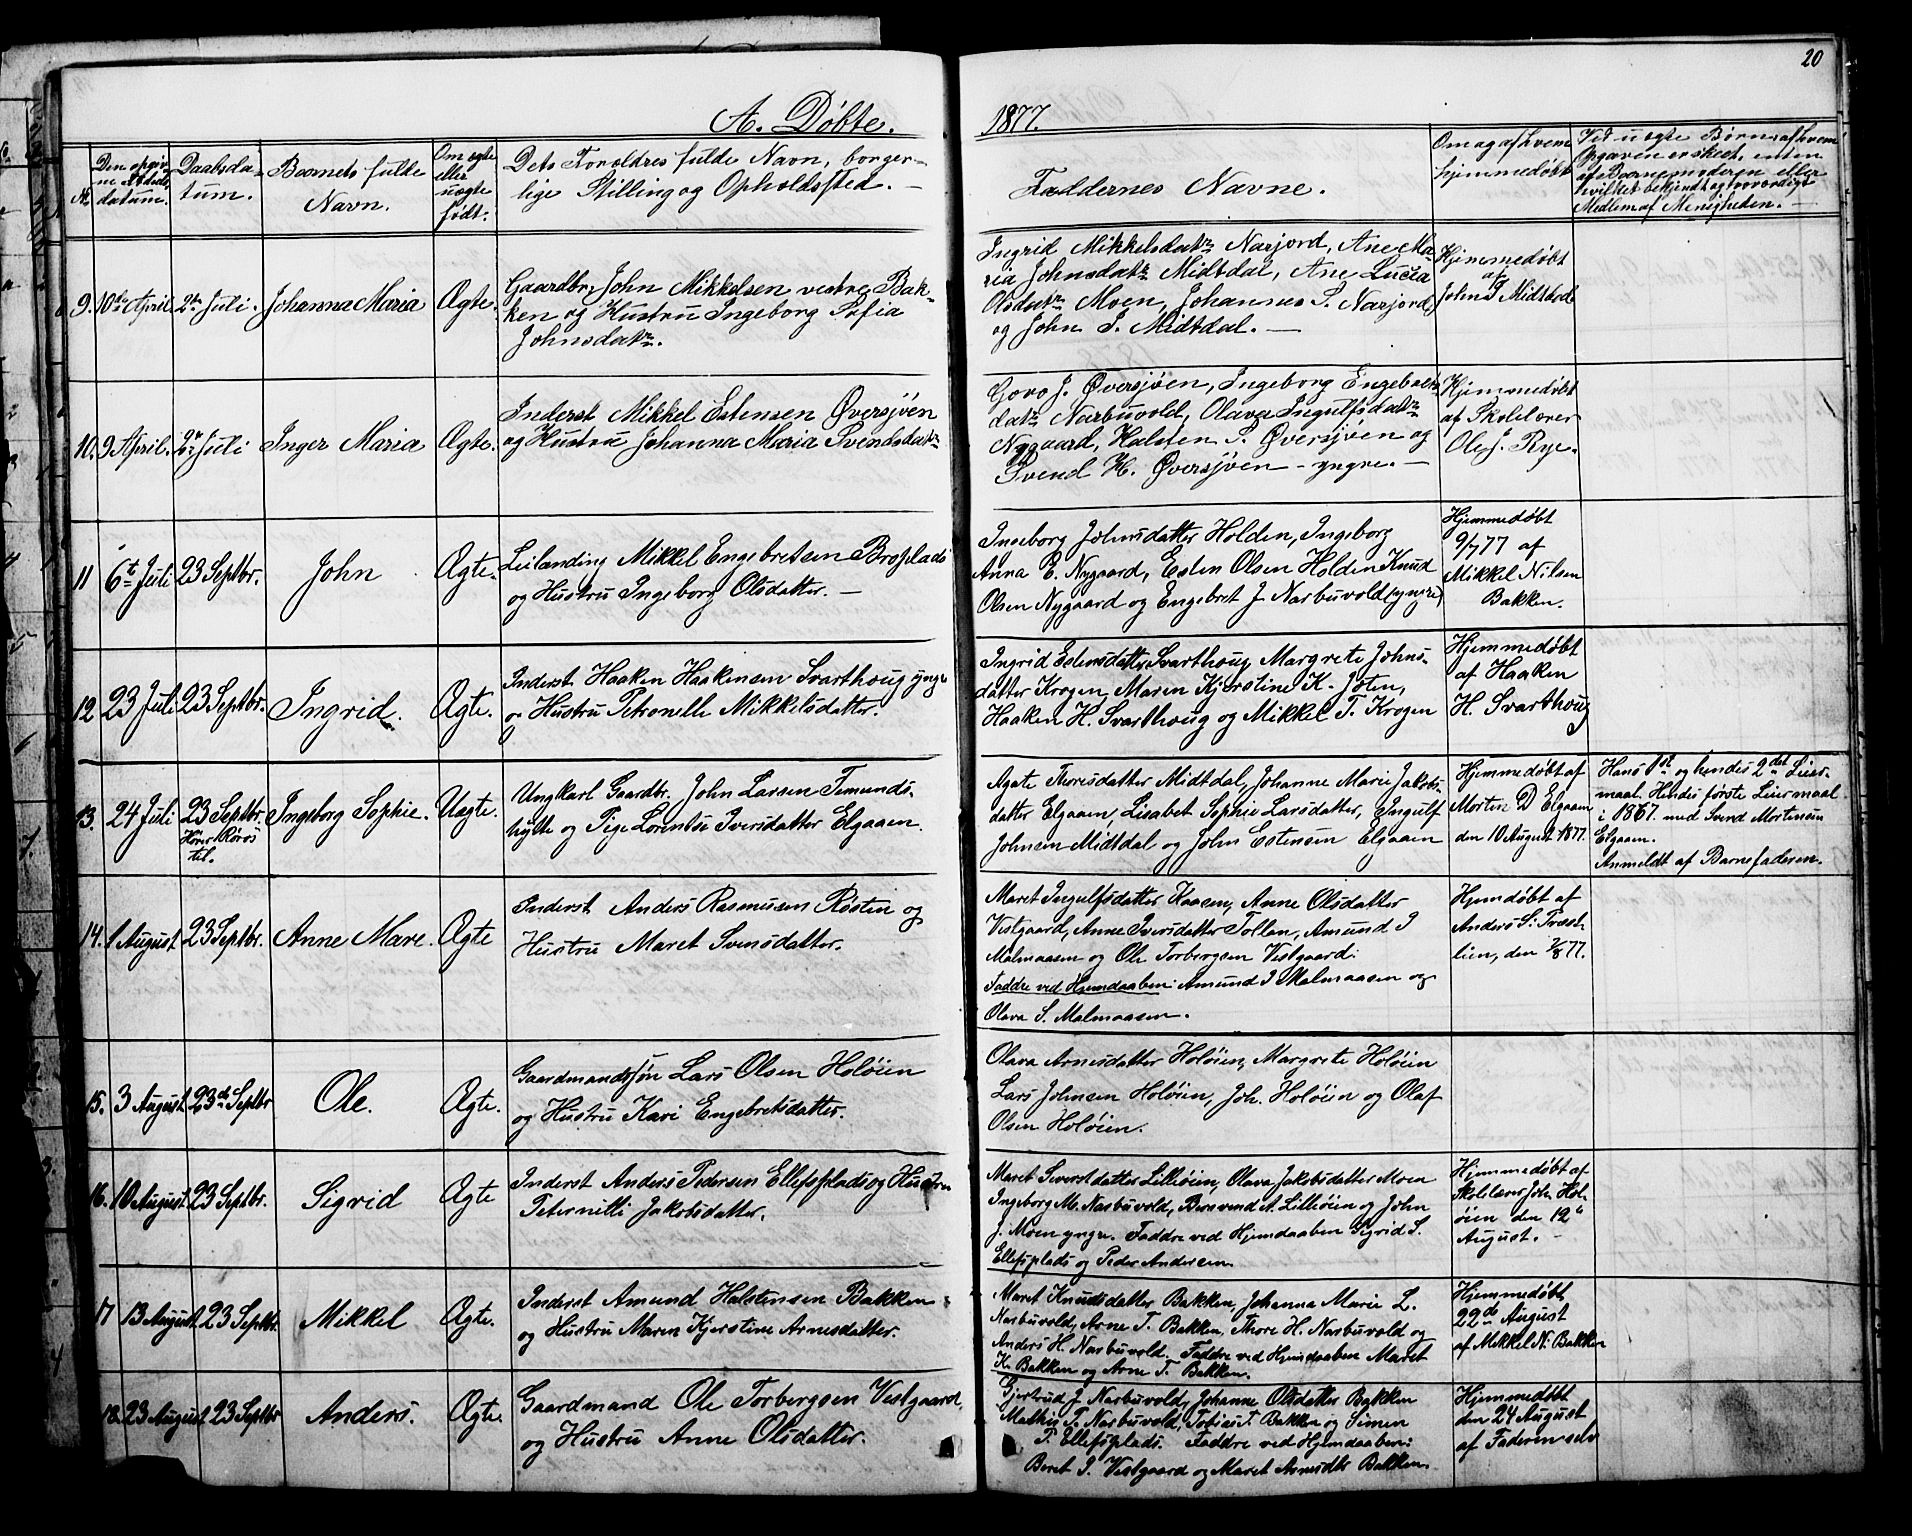 20
A. Døbte.
1877.
No.
Den opgiv-
ne Fødsels-
datum.
Daabsda-
tum.
Barnets fulde
Navn.
Om ægte
eller
uægte
født.
Dets Forældres fulde Navn, borger-
lige Stilling og Opholdssted. —
Faddernes Navne.
Om og af hvem
hjemmedøbt
Ved uægte Børn af hvem
Opgaven er skeet, enten
af Barnemoderen eller
hvilket bekjendt og troværdigt
Medlem af Menigheden. —
9. 10de April. 2den Juli. Johanna Maria Ægte.
Gaardbr. John Mikkelsen vestre Bak-
ken og Hustru Ingeborg Sofia
Johnsdatr.
Ingrid Mikkelsdatr Narjord, Ane Ma-
ria Johnsdatr Midtdal, Ane Lucia
Olsdatr Moen, Johannes S. Narjord
og John J. Midtdal. —
Hjemmedøbt
af
John J Midtdal
10. 9 April. 2den Juli Inger Maria Ægte.
Inderst Mikkel Estensen Øversjøen
og Hustru Johanna Maria Svendsdatr
Goro J. Øversjøen, Ingeborg Engebrets
datr Narbuvold, Olava Ingulfsdatr
Nygaard, Halsten S. Øversjøen og
Svend H. Øversjøen – yngre. —
Hjemmedøbt
af Skolelærer
Ole J. Rye.
11 6te Juli 23 Septbr. John Ægte.
Leilænding Mikkel Engebretsen Broplads
og Hustru Ingeborg Olsdatter. —
Ingeborg Johnsdatter Holden, Ingeborg
Anna E. Nygaard, Esten Olsen Holden Knud
Olsen Nygaard og Engebret J Narbuvold (yngre)
Hjemmedøbt
9/7 77 af
Mikkel Nilsen
Bakken.
12 23 Juli 23 Septbr. Ingrid. Ægte.
Inderst Haaken Haakensen Svarthoug yngr
og Hustru Petronelle Mikkelsdatter.
Ingrid Estensdatter Svarthoug, Margrete Johns-
datter Krogen, Maren Kjerstine K. Joten,
Haaken H. Svarthoug og Mikkel T. Krogen
Hjemmedøbt
af Haaken
H. Svarthoug
13. 24 Juli 23 Septbr. Ingeborg Sophie. Uægte.
Hører Røros
til.
Ungkarl Gaardbr. John Larsen Femunds-
hytte og Pige Lorentse Iversdatter Elgaaen.
Agate Thoresdatter Midtdal, Johanne Marie Jakobs-
datter Elgaaen, Lisabet Sophie Larsdatter, Ingulf
Johnsen Midtdal og John Estensen Elgaaen
Hjemmedøbt af
Morten D Elgaaen
den 10 August 1877.
Hans 1st og hendes 2det Leier-
maal. Hendes første Leiermaal
i 1867 med Svend Mortensen
Elgaaen.
Anmeldt af Barnefaderen.
14. 1 August 23 Septbr. Anne Mare. Ægte
Inderst Anders Rasmusen Røsten og
Hustru Maret Svensdatter.
Maret Ingulfsdatter Kaasen, Anne Olsdatter
Vestgaard, Anne Iversdatter Tollan, Amund I
Malmaasen og Ole Torbergsen Vestgaard.
Faddre ved Hjemdaaben: Amund I Malmaasen og
Olava S. Malmaasen.
Hjemdøbt af
Anders S. Træet-
lien, den 2/8 77.
15. 3 August 23de Septbr Ole. Ægte.
Gaardmandssøn Lars Olsen Holøien
og Hustru Kari Engebretsdatter.
Olava Arnesdatter Holøien, Margrete Holøien
Lars Johnsen Holøien, Joh. Holøien og Olaf
Olsen Holøien.
16. 10 August. 23 Septbr. Sigrid Ægte
Inderst Anders Pedersen Ellefsplads og Hustru
Peternille Jakobsdatter.
Maret Siverstdatter Lilliøien, Olava Jakobsdatter Moen
Ingeborg M. Narbuvold, Bersvend A. Lilliøien og John
J. Moen yngr. Faddre ved Hjemdaaben Sigrid S.
Ellefsplads og Peder Andersen.
Hjemmedøbt af
Skolelærer Joh. Hol-
øien den 12te
August. –
17 13 August 23 Septbr. Mikkel Ægte.
Inderst Amund Halstensen Bakken
og Hustru Maren Kjerstine Arnesdatter.
Maret Knudsdatter Bakken, Johanna Marie L.
Narbuvold, Arne T. Bakken, Thore H. Narbuvold og
Anders H. Narbuvold. Faddre ved Hjemdaaben Maret
K. Bakken og Arne T. Bakken.
Hjemmedøbt,
22de August
af Mikkel N. Bakken
18. 23 August 23 Septbr Anders. Ægte.
Gaardmand Ole Torbergsen Vestgaard,
og Hustru Anne Olsdatter.
Gjertrud J. Narbuvold, Johanne Olsdatter Bakken
Mathis T. Narbuvold, Tobias T. Bakken og Simen
P. Ellefsplads. Faddre ved Hjemdaaben:
Beret P. Vestgaard og Maret Arnesdtr Bakken.
Hjemmedøbt
den 24 August
af Faderen selv